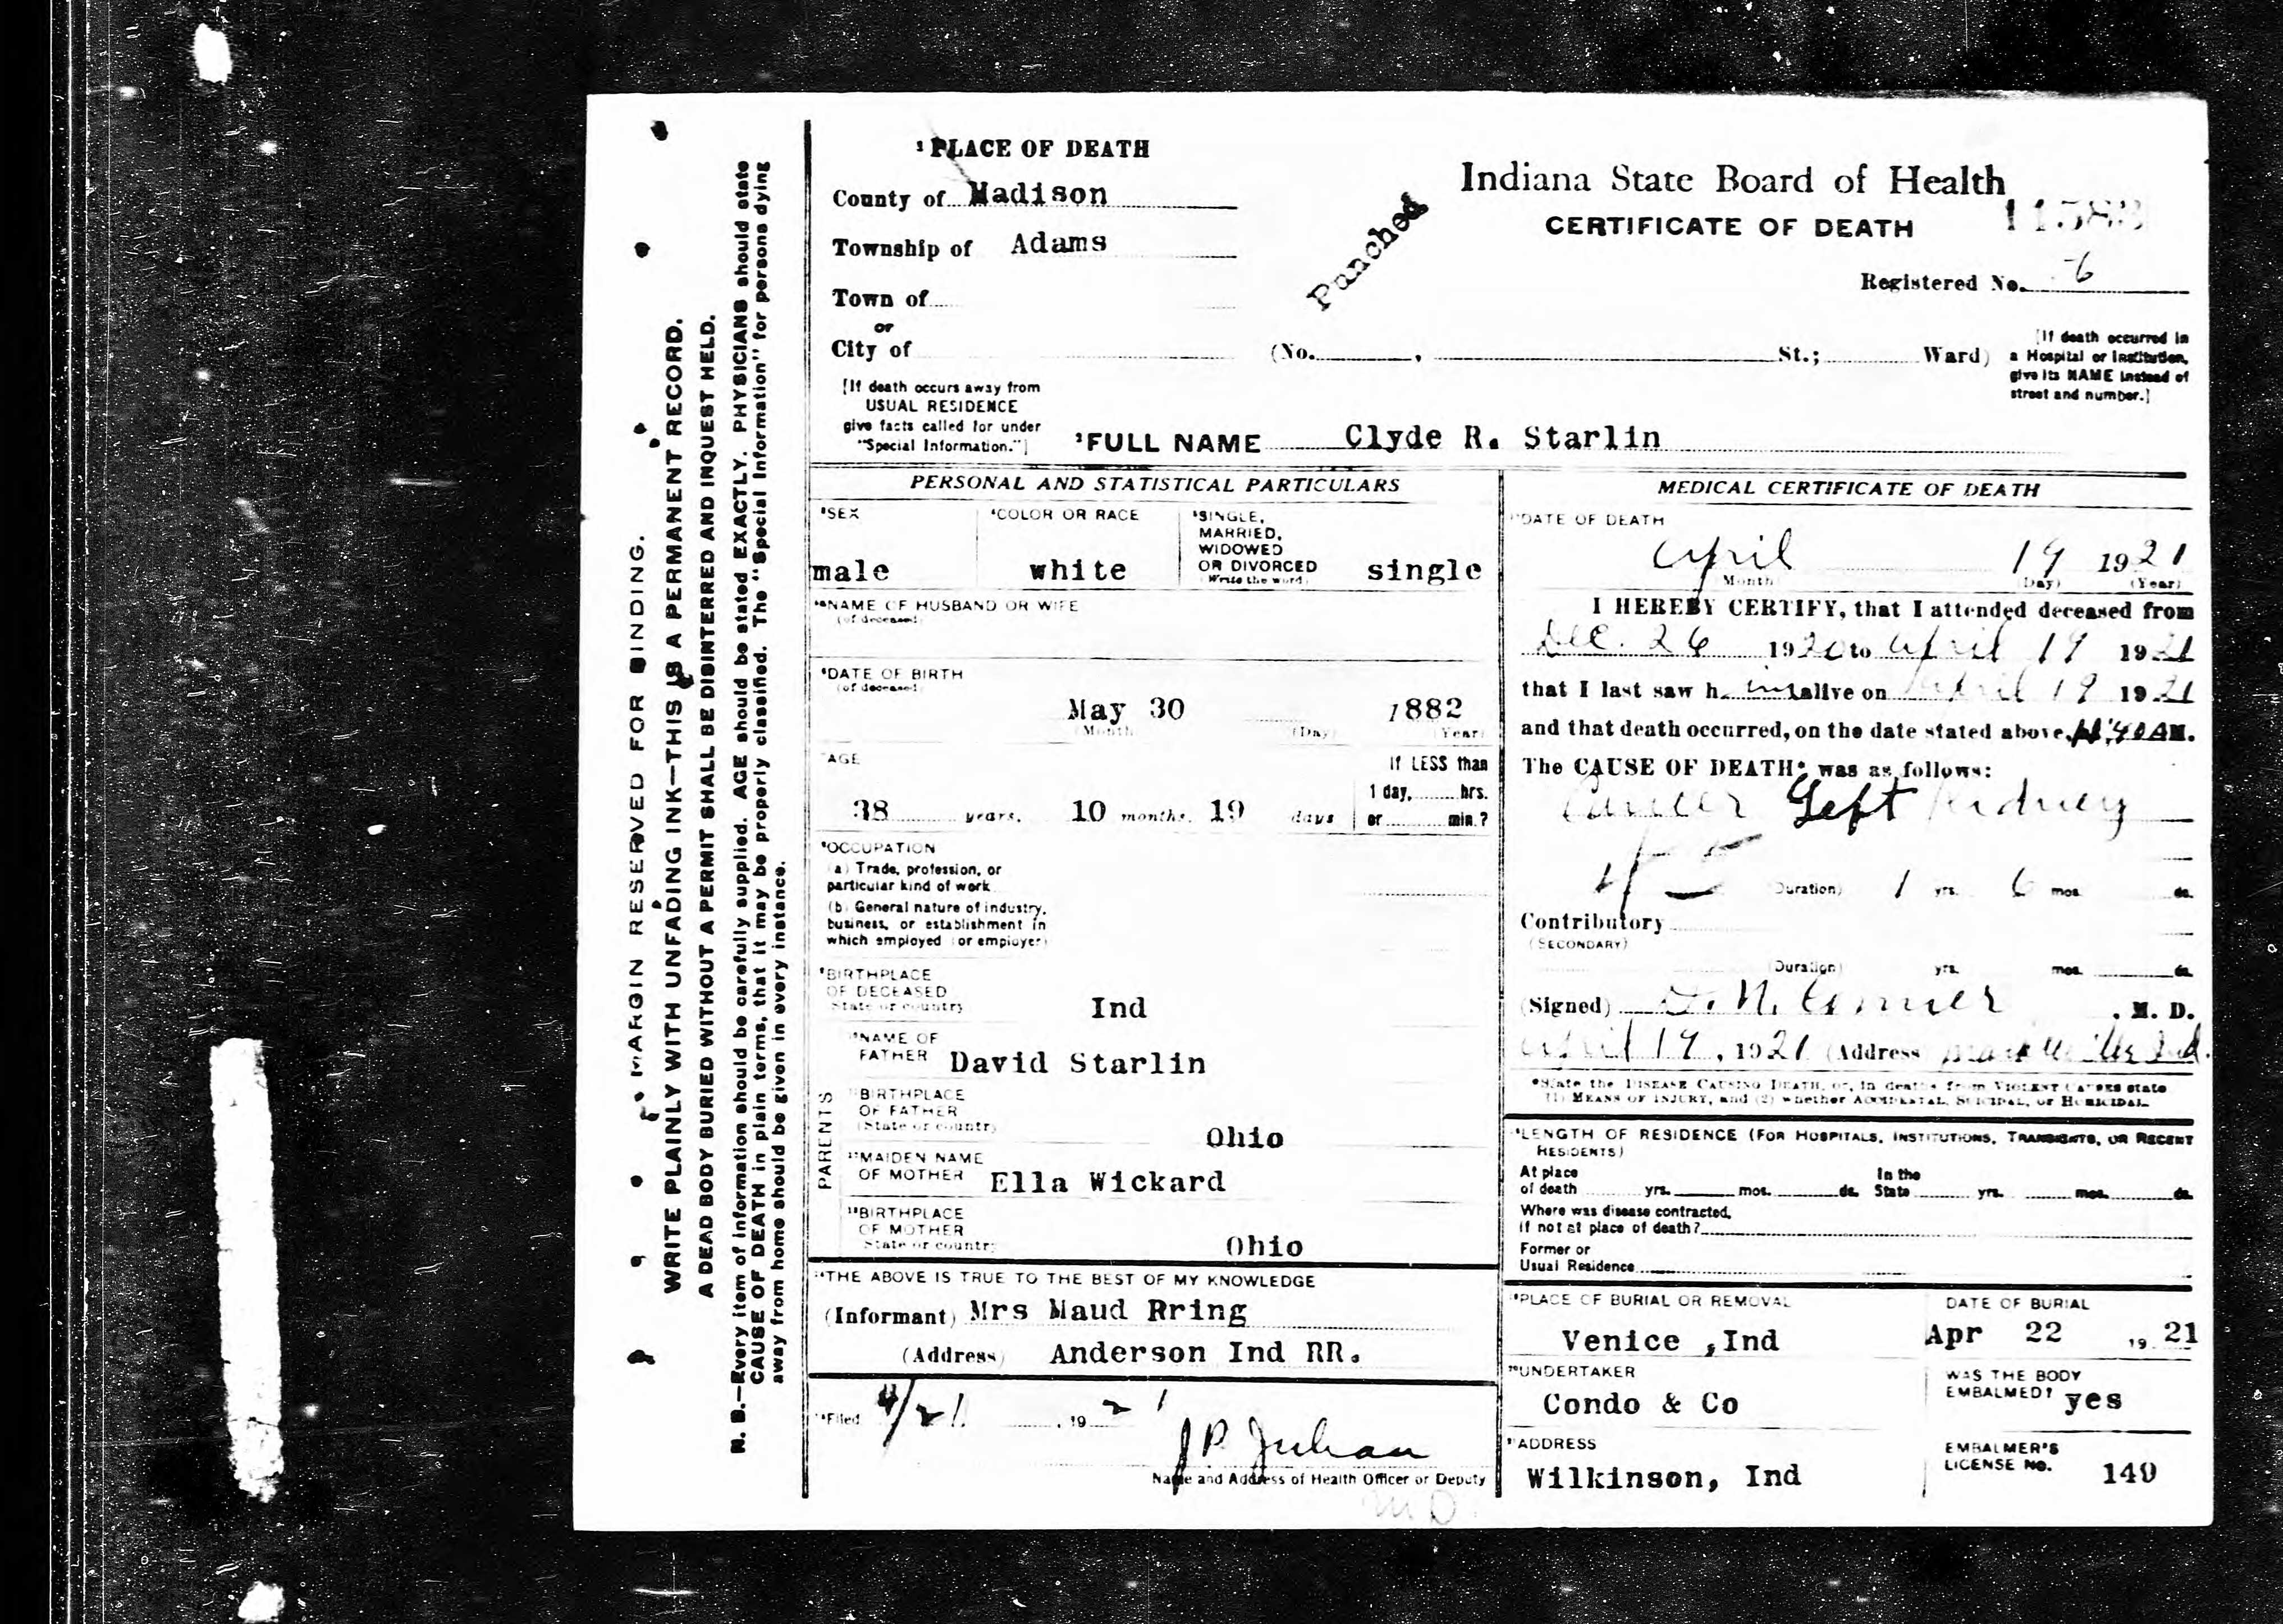 MARGIN RESERVED FOR BINDING.
WRITE PLAINLY WITH UNFADING INK—THIS IS A PERMANENT RECORD.
A DEAD BODY BURIED WITHOUT A PERMIT SHALL BE DISINTERRED AND INQUEST HELD.
N. B.—Every item of information should be carefully supplied. AGE should be stated EXACTLY. PHYSICIANS should state
CAUSE OF DEATH in plain terms, that it may be properly classified. The "Special Information" for persons dying
away from home should be given in every instance.
1 PLACE OF DEATH
County of Madison
Township of Adams
Town of
or
City of
[If death occurs away from
USUAL RESIDENCE
give facts called for under
"Special Information."]
Punched
Indiana State Board of Health
CERTIFICATE OF DEATH
Registered No. 6
(No. , St.; Ward)
[If death occurred in
a Hospital or Institution,
give its NAME instead of
street and number.]
FULL NAME Clyde R. Starlin
PERSONAL AND STATISTICAL PARTICULARS
SEX
male
COLOR OR RACE
white
SINGLE,
MARRIED,
WIDOWED
OR DIVORCED
(Write the word)
single
NAME OF HUSBAND OR WIFE
(of deceased)
DATE OF BIRTH
(of deceased)
May 30 1882
(Month) (Day) (Year)
AGE
38 years, 10 months, 19 days
If LESS than
1 day, hrs.
or min.?
OCCUPATION
(a) Trade, profession, or
particular kind of work
(b) General nature of industry,
business, or establishment in
which employed (or employer)
BIRTHPLACE
OF DECEASED
State or country
Ind
PARENTS
NAME OF
FATHER David Starlin
BIRTHPLACE
OF FATHER
(State or country)
Ohio
MAIDEN NAME
OF MOTHER Ella Wickard
BIRTHPLACE
OF MOTHER
State or country
Ohio
THE ABOVE IS TRUE TO THE BEST OF MY KNOWLEDGE
(Informant) Mrs Maud Rring
(Address) Anderson Ind RR.
Filed 4/21 , 1921
J P. Julian
Name and Address of Health Officer or Deputy
MD
MEDICAL CERTIFICATE OF DEATH
DATE OF DEATH
April 19 1921
(Month) (Day) (Year)
I HEREBY CERTIFY, that I attended deceased from
Dec. 26 1920 to April 19 1921
that I last saw him alive on April 19 1921
and that death occurred, on the date stated above, 11:40 AM.
The CAUSE OF DEATH* was as follows:
Cancer Left Kidney
45 (Duration) 1 yrs. 6 mos. ds.
Contributory
(SECONDARY)
(Duration) yrs. mos. ds.
(Signed) , M. D.
April 19, 1921 (Address) Markleville Ind.
*State the DISEASE CAUSING DEATH, or, in deaths from VIOLENT CAUSES state
(1) MEANS OF INJURY, and (2) whether ACCIDENTAL, SUICIDAL, or HOMICIDAL.
LENGTH OF RESIDENCE (FOR HOSPITALS, INSTITUTIONS, TRANSIENTS, OR RECENT
RESIDENTS)
At place In the
of death yrs. mos. ds. State yrs. mos. ds.
Where was disease contracted,
if not at place of death?
Former or
Usual Residence
PLACE OF BURIAL OR REMOVAL
Venice ,Ind
DATE OF BURIAL
Apr 22 , 1921
UNDERTAKER
Condo & Co
WAS THE BODY
EMBALMED? yes
ADDRESS
Wilkinson, Ind
EMBALMER'S
LICENSE No. 149